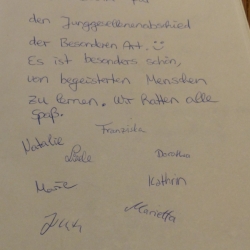 den Junggesellenabschied
der Besonderen Art. ☺
Es ist besonders schön,
von begeisterten Menschen
zu lernen. Wir hatten alle
Spaß.
Franziska
Natalie
Dorothea
Kathrin
Marietta